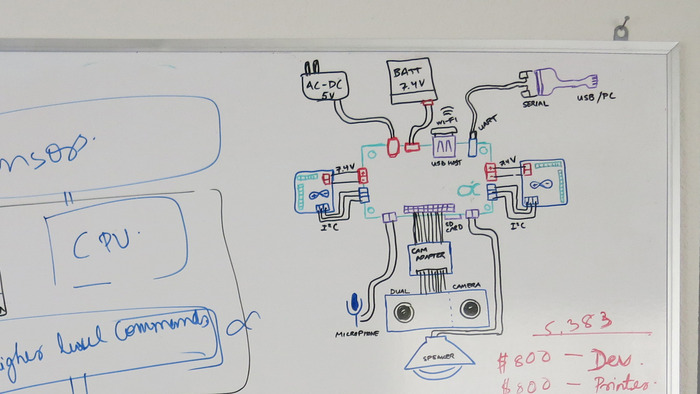 nsor.
CPU.
igher level Commands
AC-DC
5V
BATT
7.4V
Wi-Fi
USB HOST
UART
SERIAL
USB/PC
7.4V
7.4V
I²C
I²C
SD
CARD
CAM
ADAPTER
DUAL CAMERA
MICROPHONE
SPEAKER
5,383
$800 — Dev.
$800 — Printer